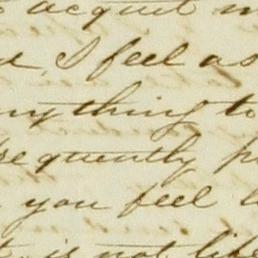 acquit
d, I feel as
ny thing to
requently p
you feel
is not life